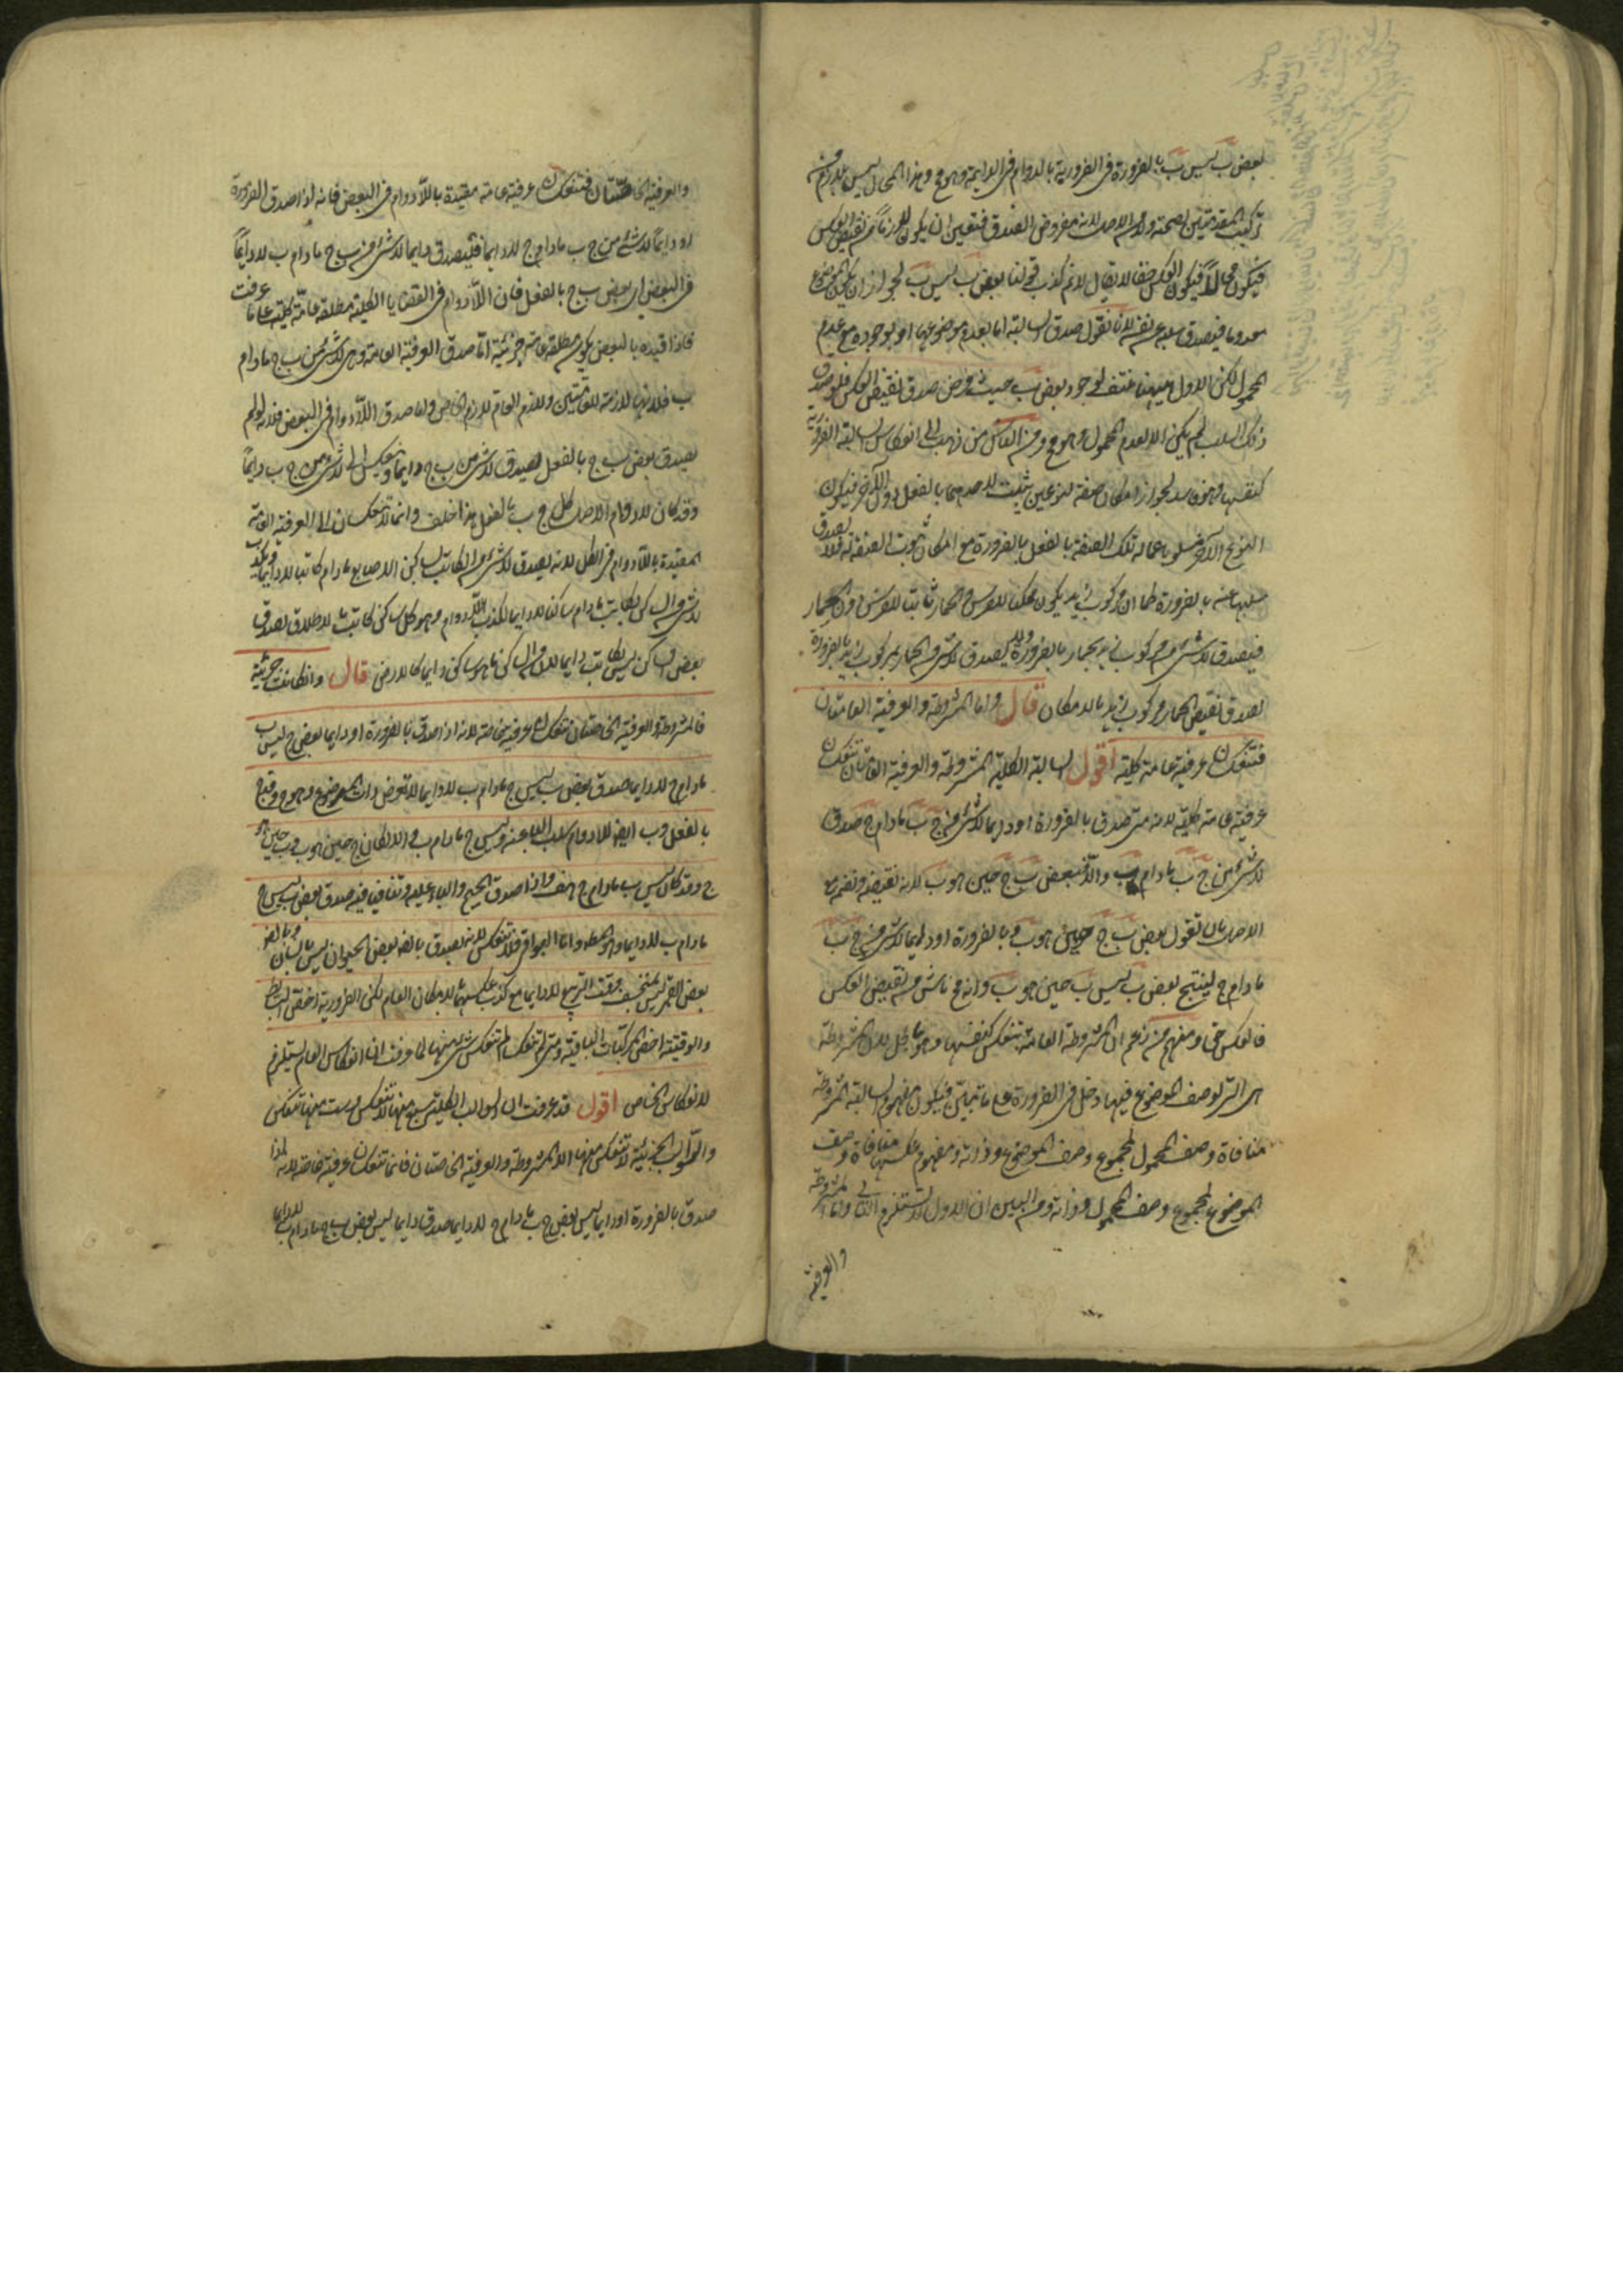 بعض ب ليس ب بالضرورة فى الضرورية بالدوام فى الدايمة وهو مح وهذا المحال ليس بلازم من
تركيب المقدمتين لصحته ولا من الاصل لانه مفروض الصدق فتعين ان يكون لازما من نقيض العكس
فيكون محالا فيكون العكس حقا لا يقال لا نم كذب قولنا بعض ب ليس ب لجواز ان يكون الموضوع
معدوما فيصدق سلبه عن نفسه لانا نقول صدق السالبة اما بعدم موضوعها او بوجوده مع عدم
المحمول لكن الاول ههنا منتف لوجود بعض ب حيث فرض صدق نقيض العكس فلو صدق
ذلك السلب لم يكن الا لعدم المحمول وهو مح ومن الناس من ذهب الى انعكاس السالبة الضرورية
كنفسها وهو فاسد لجواز امكان صفة لنوعين يثبت لاحدهما بالفعل دون الآخر فيكون
النوع الآخر مسلوبا عما له تلك الصفة بالفعل بالضرورة مع امكان ثبوت الصفة له فلا يصدق
سلبها عنه بالضرورة كما ان مركوب زيد يكون ممكنا للفرس والحمار ثابتا للفرس دون الحمار
فيصدق لا شئ من مركوب زيد بحمار بالضرورة ولا يصدق لا شئ من الحمار بمركوب زيد بالضرورة
لصدق نقيضه الحمار مركوب زيد بالامكان قال واما المشروطة والعرفية العامتان
فتنعكسان عرفية عامة كلية اقول السالبة الكلية المشروطة والعرفية العامتان تنعكسان
عرفية عامة كلية لانه متى صدق بالضرورة او دايما لا شئ من ج ب مادام ج صدق
لا شئ من ج ب مادام ب والا فبعض ب ج حين هو ب لانه نقيضه ونضمه مع
الاصل بان نقول بعض ب ج حين هو ب وبالضرورة او دايما لا شئ من ج ب
مادام ج لينتج بعض ب ليس ب حين هو ب وانه مح ناش من نقيض العكس
فالعكس حق ومنهم من زعم ان المشروطة العامة تنعكس كنفسها وهو باطل لان المشروطة
هى التى لوصف الموضوع فيها دخل فى الضرورة على ما تبين فيكون مفهوم السالبة المشروطة
منافاة وصف المحمول لمجموع وصف الموضوع وذاته ومفهوم عكسها منافاة وصف
الموضوع لمجموع وصف المحمول وذاته ومن البين ان الاول لا يستلزم الثانى واما المشروطة
والعرفية
والعرفية الخاصتان فتنعكسان عرفية عامة مقيدة باللادوام فى البعض فانه اذا صدق بالضرورة
او دايما لا شئ من ج ب مادام ج لا دايما فليصدق دايما لا شئ من ب ج مادام ب لا دايما
فى البعض اى بعض ب ج بالفعل فان اللادوام فى القضايا الكلية مطلقة عامة كلية على ما عرفت
فاذا قيده بالبعض يكون مطلقة عامة جزئية اما صدق العرفية العامة وهى لا شئ من ب ج مادام
ب فلانها لازمة للعامتين ولازم العام لازم الخاص واما صدق اللادوام فى البعض فلانه لو لم
يصدق بعض ب ج بالفعل لصدق لا شئ من ب ج دايما وتنعكس الى لا شئ من ج ب دايما
وقد كان لادوام الاصل كل ج ب بالفعل هذا خلف وانما لا تنعكسان الى العرفية العامة
المقيدة باللادوام فى الكل لانه يصدق لا شئ من الكاتب بساكن الاصابع مادام كاتبا لا دايما ويكذب
لا شئ من الساكن بكاتب مادام ساكنا لا دايما لكذب اللادوام وهو كل ساكن كاتب بالاطلاق لصدق
بعض الساكن ليس بكاتب دايما لان من الساكن ما هو ساكن دايما كالارض قال وان كانت جزئية
فالمشروطة والعرفية الخاصتان تنعكسان عرفية خاصة لانه اذا صدق بالضرورة او دايما بعض ج ليس ب
مادام ج لا دايما صدق بعض ب ليس ج مادام ب لا دايما لانا نفرض ذات الموضوع وهو ج د فد ج
بالفعل و د ب ايضا للادوام سلب الباء عنه وليس ج مادام ب والا لكان ج حين هو ب فب حين هو
ج وقد كان ليس ب مادام ج هف واذا صدق الجيم والباء عليه وتنافيا فيه صدق بعض ب ليس ج
مادام ب لا دايما وهو المط واما البواقى فلا تنعكس لانه يصدق بالضرورة بعض الحيوان ليس بانسان وبالضرورة
بعض القمر ليس بمنخسف وقت التربيع لا دايما مع كذب عكسهما بالامكان العام لكن الضرورية اخص البسايط
والوقتية اخص المركبات الباقية ومتى لم تنعكسا لم تنعكس شئ منها لما عرفت ان انعكاس العام يستلزم
لانعكاس الخاص اقول قد عرفت ان السوالب الكلية سبع منها لا تنعكس وست منها تنعكس
والسوالب الجزئية لا تنعكس منها الا المشروطة والعرفية الخاصتان فانهما تنعكسان عرفية خاصة لانه اذا
صدق بالضرورة او دايما ليس بعض ج ب مادام ج لا دايما صدق دايما ليس بعض ب ج مادام ب لا دايما